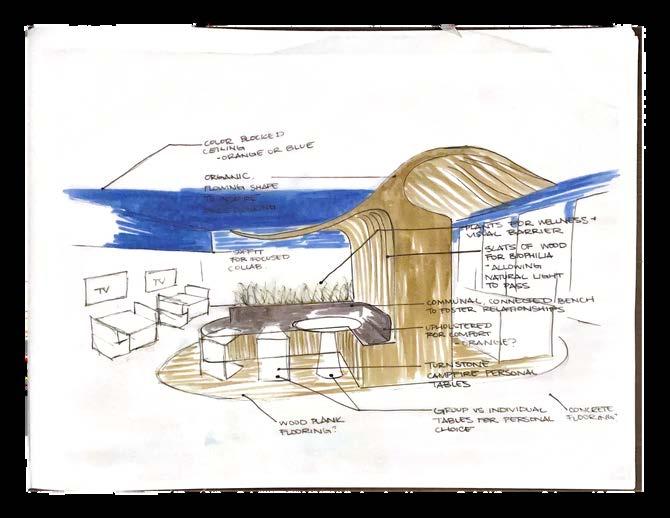 COLOR BLOCKED
CEILING
- ORANGE OR BLUE
ORGANIC,
FLOWING SHAPE
TO INSPIRE
PLANTS FOR WELLNESS +
VISUAL BARRIER
SLATS OF WOOD
FOR BIOPHILIA
- ALLOWING
NATURAL LIGHT
TO PASS
FOR FOCUSED
COLLAB.
TV
TV
COMMUNAL, CONNECTED BENCH
TO FOSTER RELATIONSHIPS
UPHOLSTERED
FOR COMFORT
- ORANGE?
TURNSTONE
CAMPFIRE PERSONAL
TABLES
GROUP VS INDIVIDUAL
TABLES FOR PERSONAL
CHOICE
CONCRETE
FLOORING?
WOOD PLANK
FLOORING?